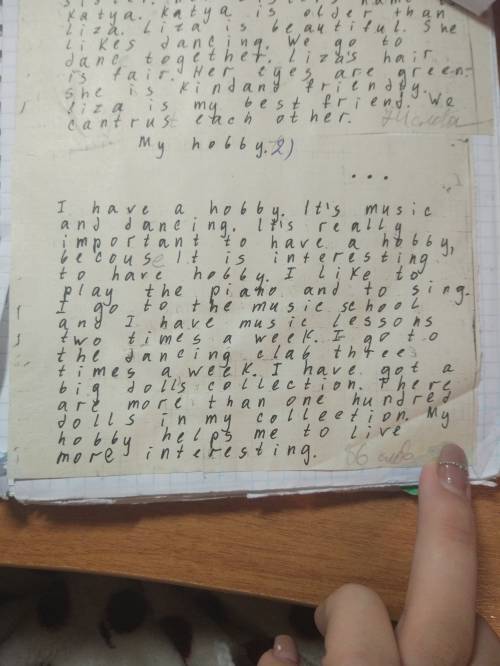 Katya. Katya is older than
Liza. Liza is beautiful. She
likes dancing. We go to
danc together. Liza's hair
is fair. Her eyes are green.
She is kindand friendly.
Liza is my best friend. We
cantrust each other.
My hobby. 2)
...
I have a hobby. It's music
and dancing. It's really
important to have a hobby,
becouse It is interesting
to have hobby. I like to
play the piano and to sing.
I go to the music school
and I have music lessons
two times a week. I go to
the dancing clab three
times a week. I have got a
big dolls collection. There
are more than one hundred
dolls in my collection. My
hobby helps me to live
more interesting. 86